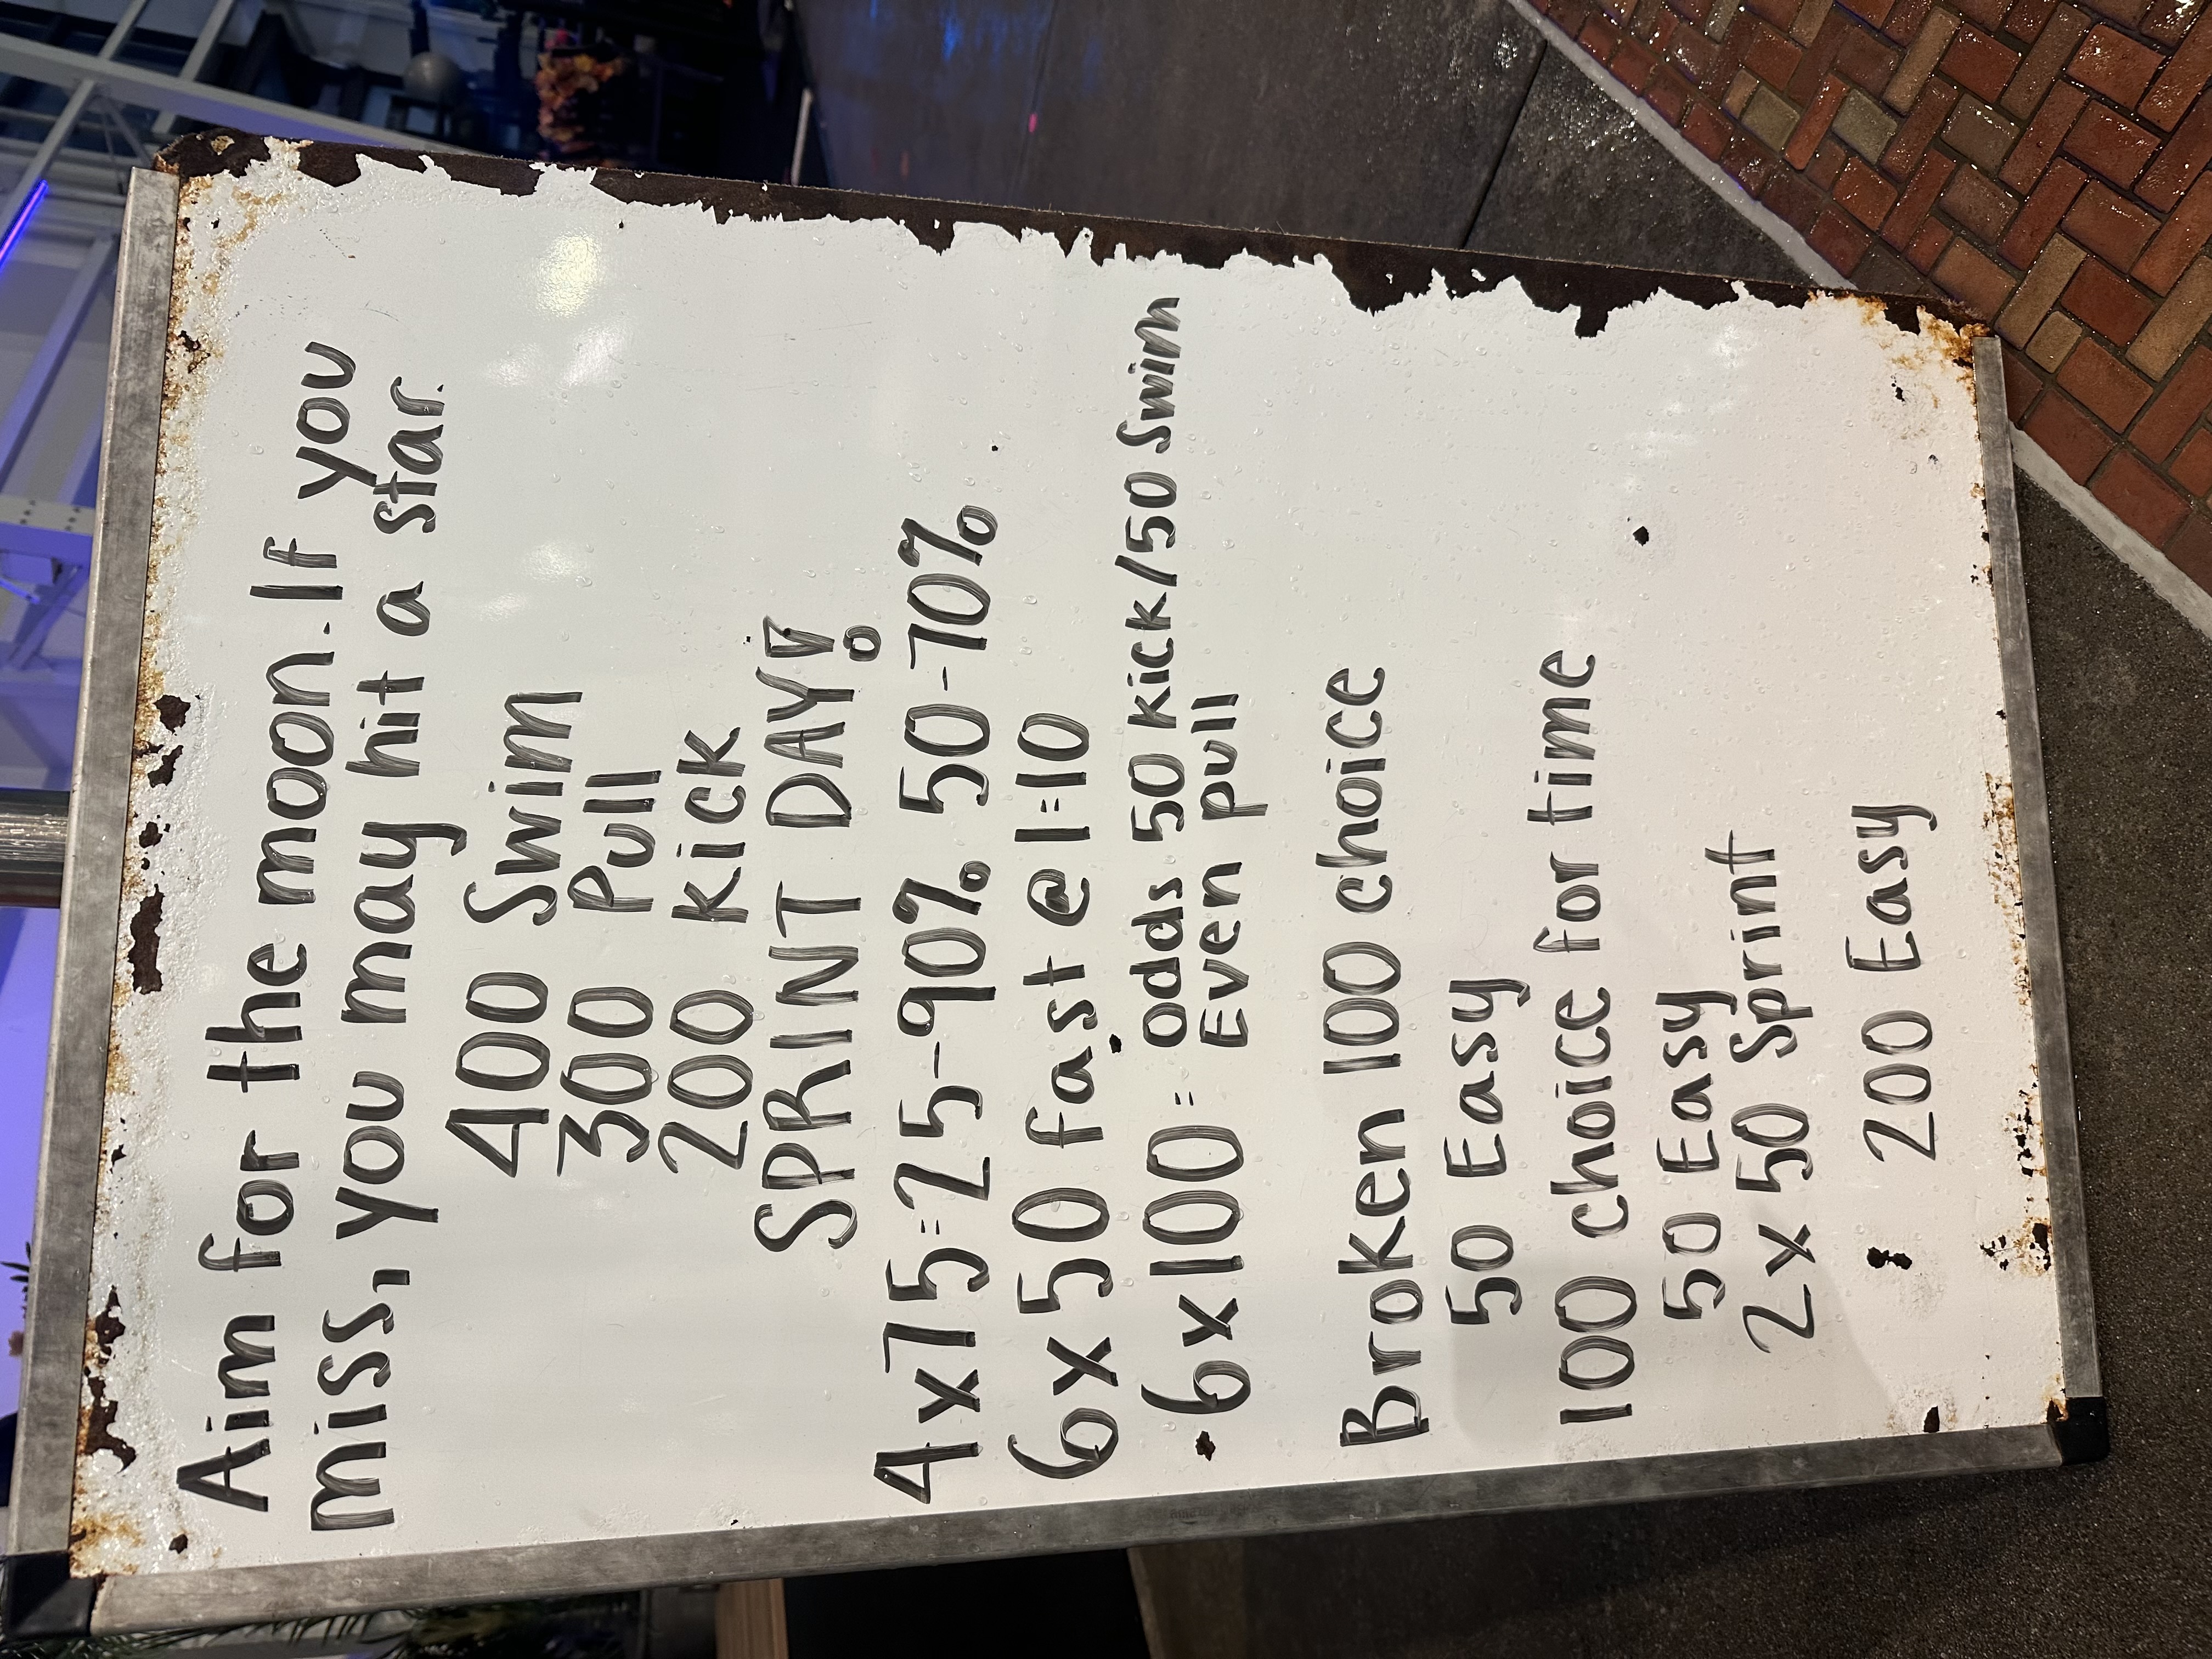 Aim for the moon. If you
miss, you may hit a star.
400 Swim
300 Pull
200 Kick
SPRINT DAY!
4x75=25-90% 50-70%
6x50 fast @ 1:10
6x100 = odds 50 kick/50 Swim
Even pull
Broken 100 choice
50 Easy
100 choice for time
50 Easy
2x50 Sprint
200 Easy